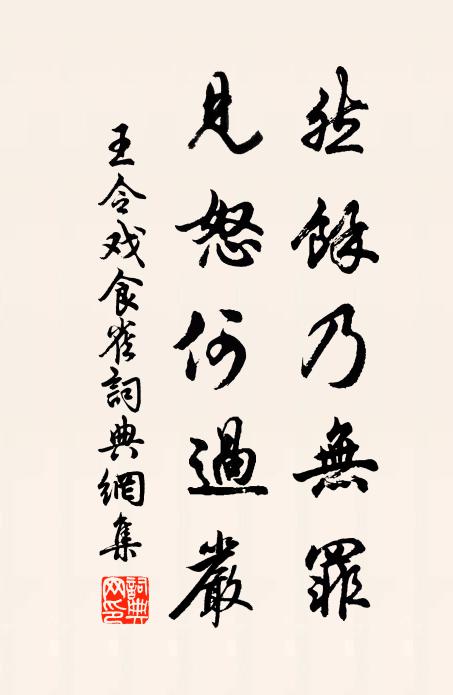 然餘乃無罪
見怒何過嚴
王令戏食雀詞典網集
詞典
网印